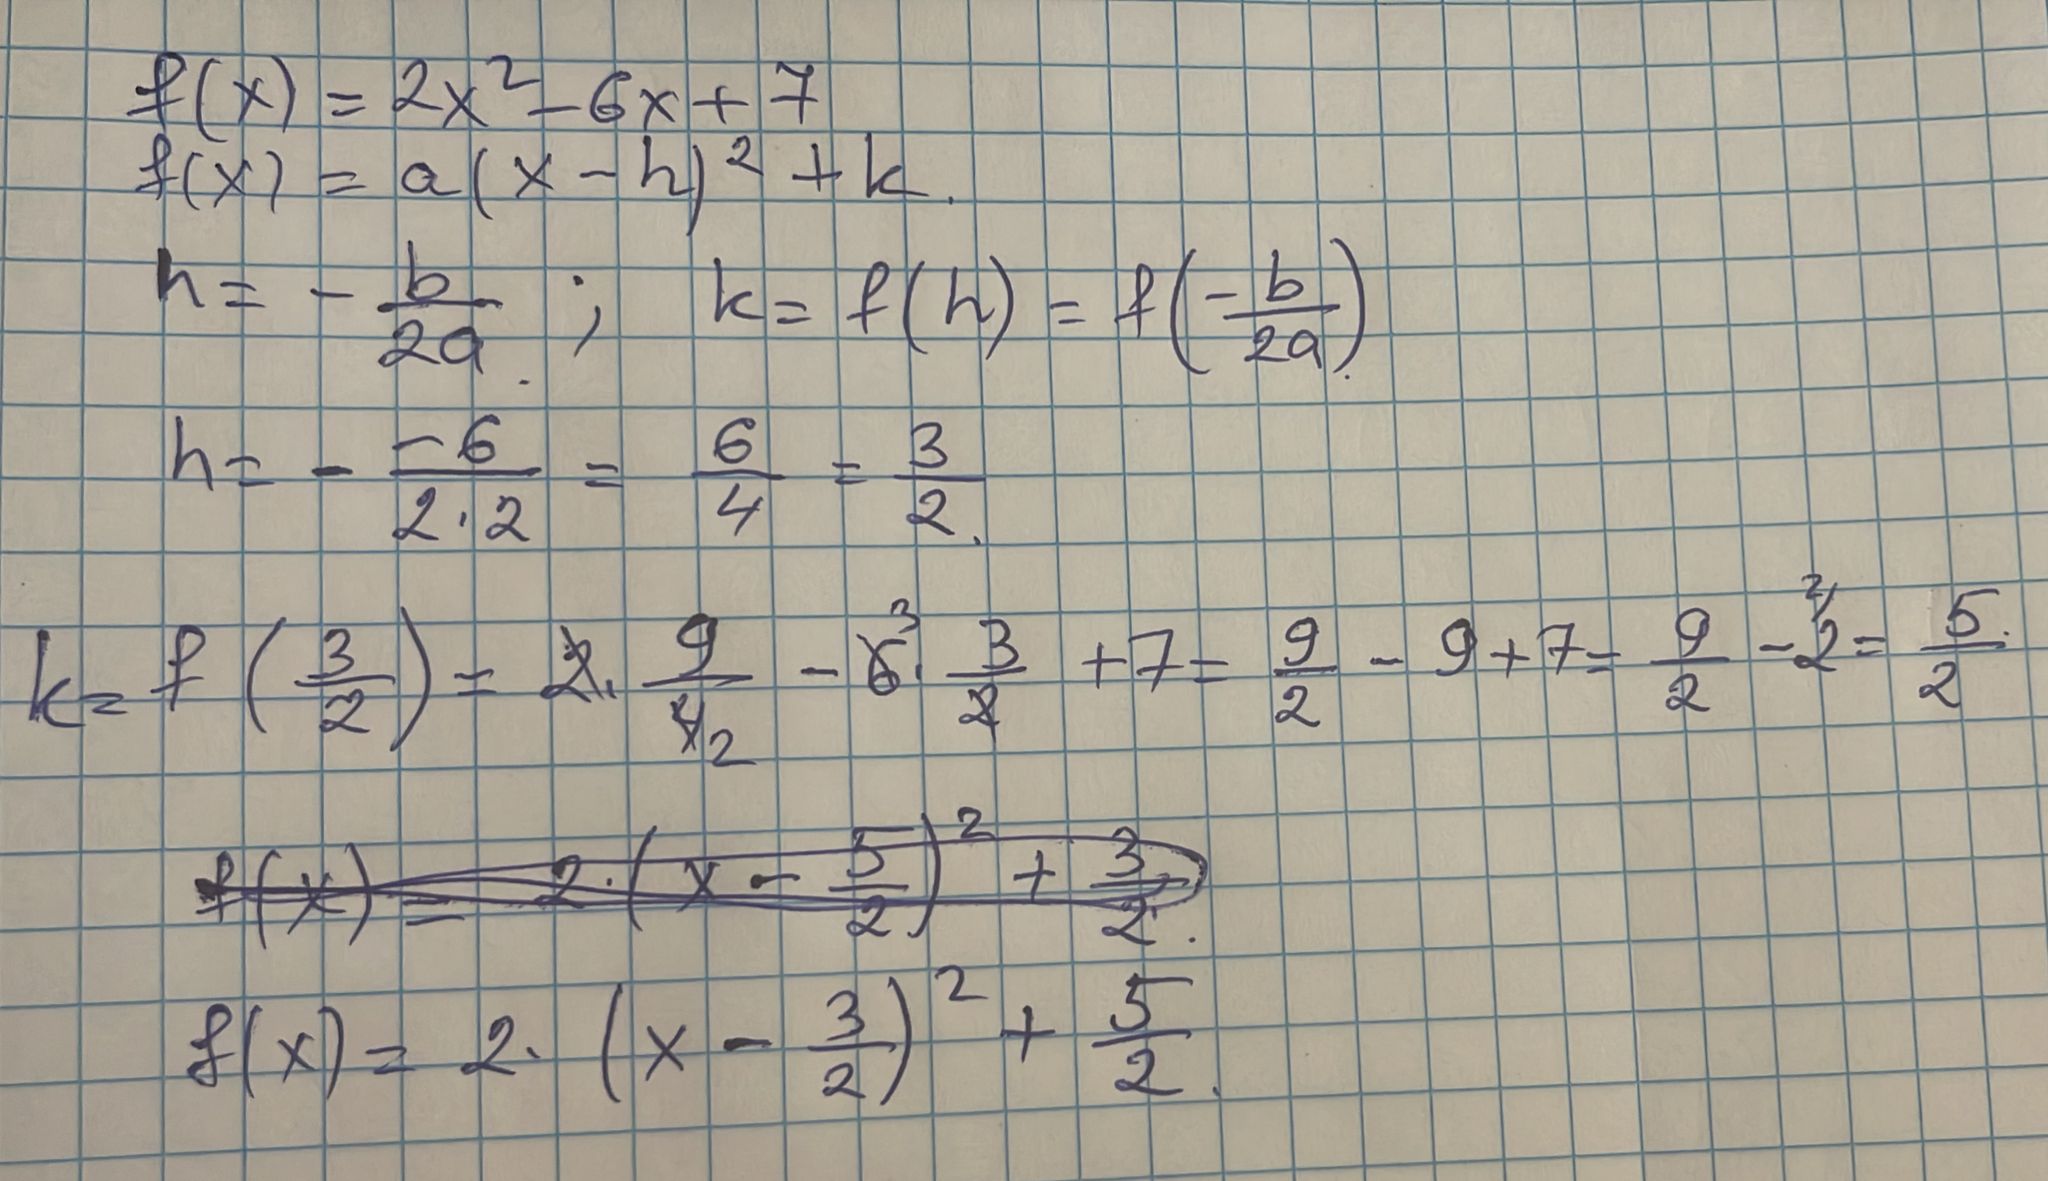 f(x) = 2x² - 6x + 7
f(x) = a(x - h)² + k.
h = - b/2a. ; k = f(h) = f(- b/2a).
h = - -6/2·2 = 6/4 = 3/2.
k = f(3/2) = 2· 9/4 2 - 6³· 3/2 + 7 = 9/2 - 9 + 7 = 9/2 - 2 ²⁄ = 5/2.
f(x) = 2·(x - 5/2)² + 3/2.
f(x) = 2· (x - 3/2)² + 5/2.